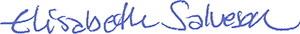 Elisabeth Salveson